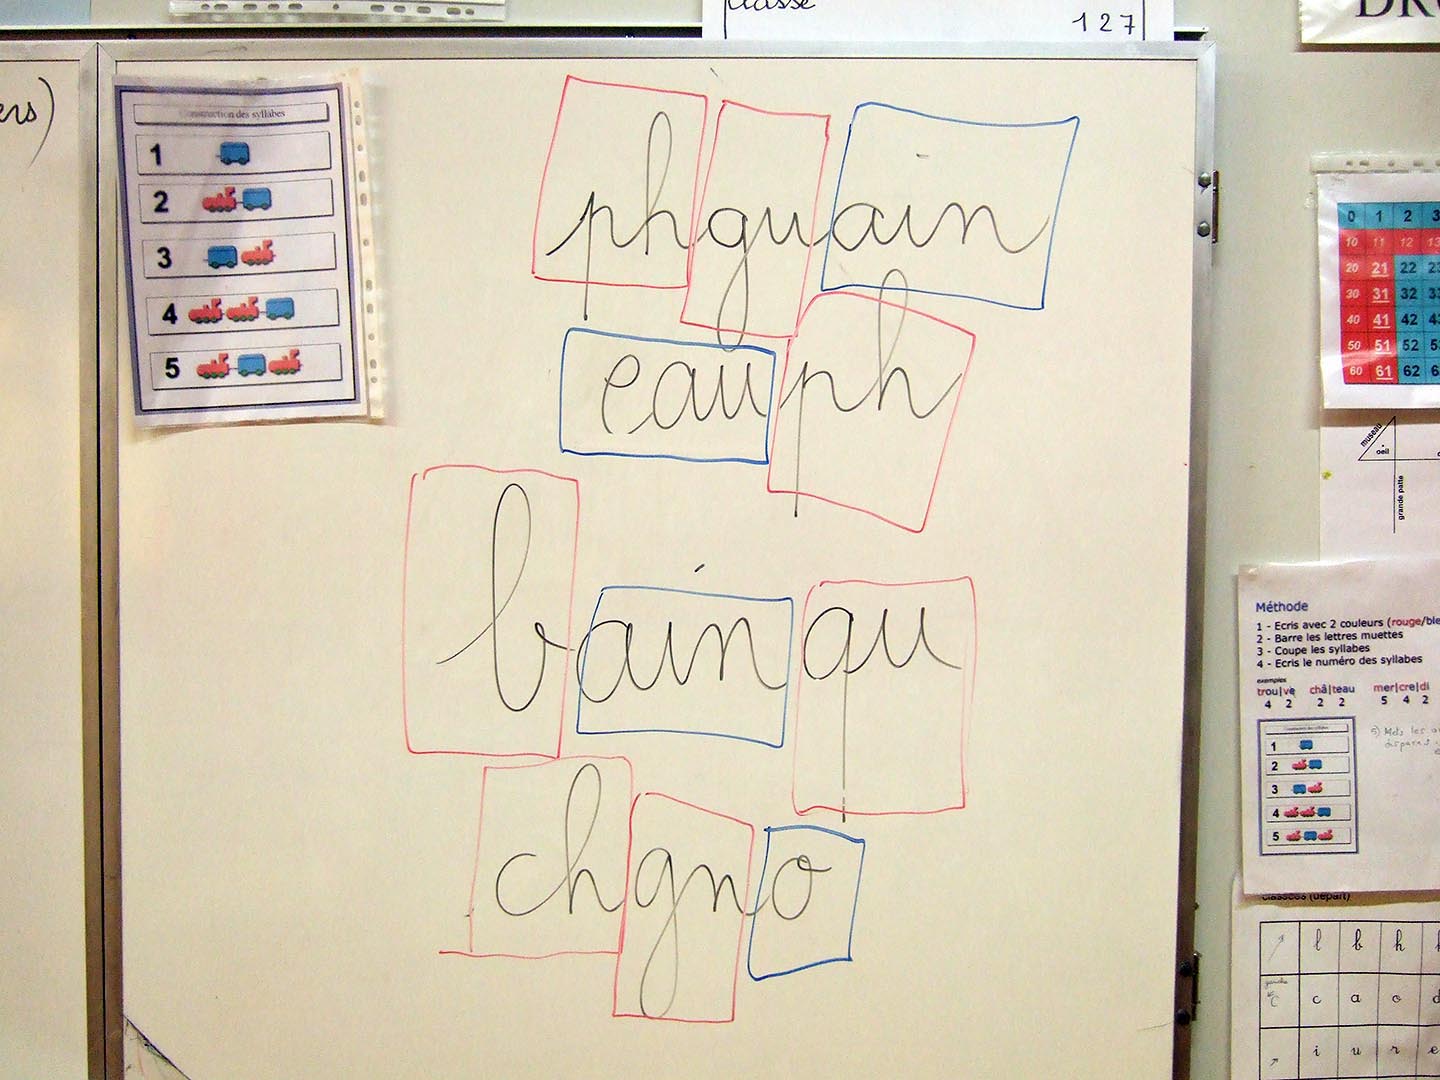 classe
127
DR
ers)
Construction des syllabes
1
2
3
4
5
phguain
eauph
bainqu
chgno
0 1 2 3
10 11 12 13
20 21 22 23
30 31 32 33
40 41 42 43
50 51 52 53
60 61 62 6
museau
oeil
grande patte
Méthode
1 - Ecris avec 2 couleurs (rouge/ble
2 - Barre les lettres muettes
3 - Coupe les syllabes
4 - Ecris le numéro des syllabes
exemples
trou|ve châ|teau mer|cre|di
4 2 2 2 5 4 2
5) Mets les
1
2
3
4
5
classées (départ)
l b h
c a o d
i u r e